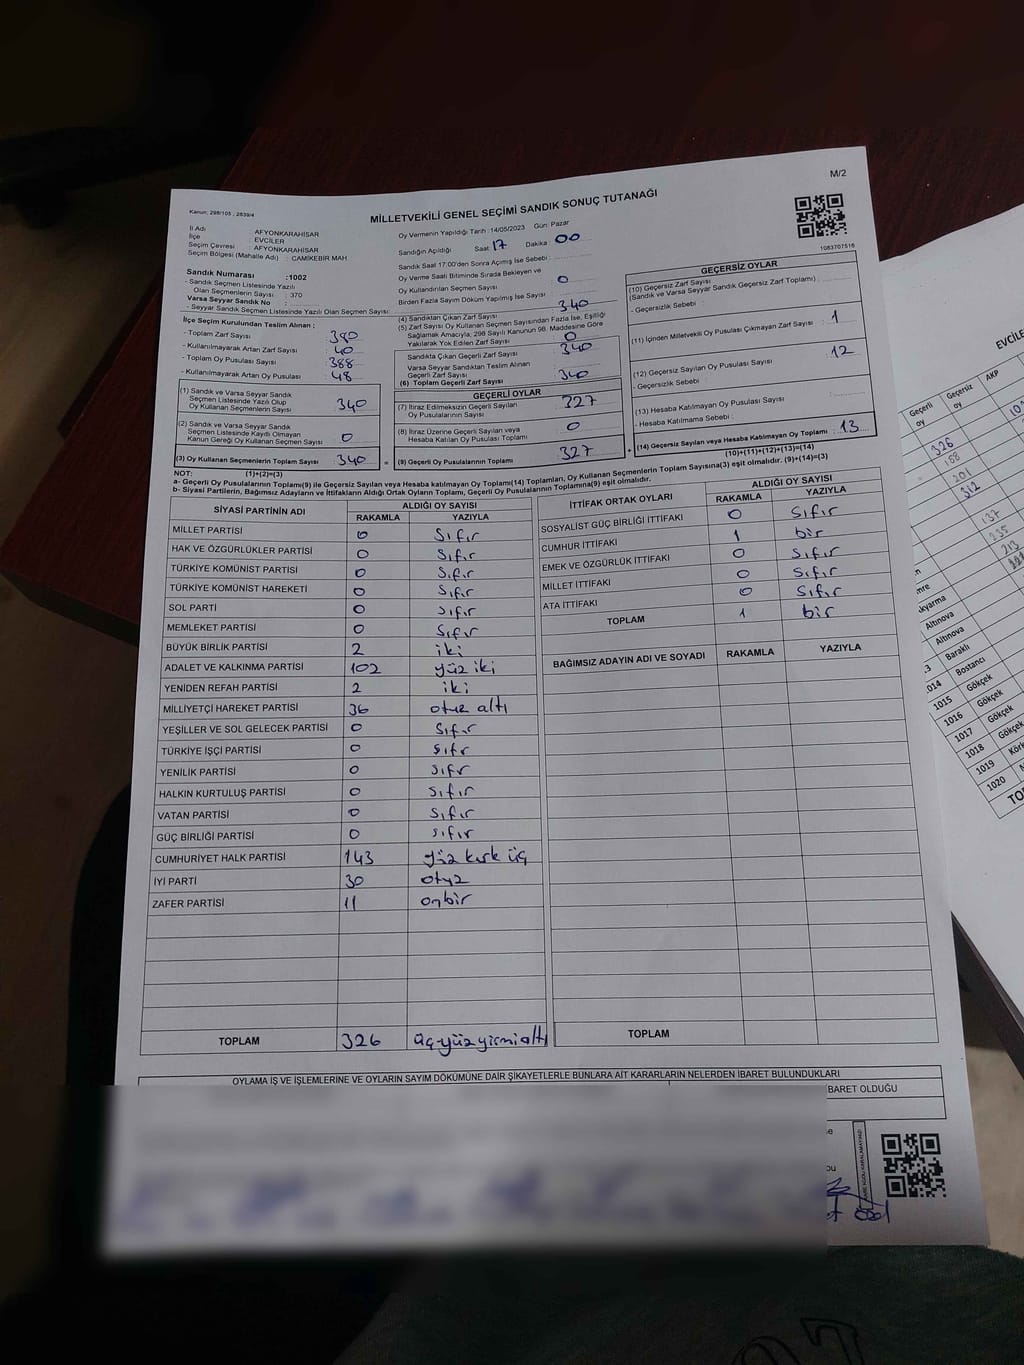 M/2
MİLLETVEKİLİ GENEL SEÇİMİ SANDIK SONUÇ TUTANAĞI
Kanun: 298/105 ; 2839/4
İl Adı : AFYONKARAHİSAR
İlçe : EVCİLER
Seçim Çevresi : AFYONKARAHİSAR
Seçim Bölgesi (Mahalle Adı) : CAMİKEBİR MAH.
Sandık Numarası :1002
- Sandık Seçmen Listesinde Yazılı
Olan Seçmenlerin Sayısı : 370
Varsa Seyyar Sandık No :
- Seyyar Sandık Seçmen Listesinde Yazılı Olan Seçmen Sayısı:
İlçe Seçim Kurulundan Teslim Alınan :
- Toplam Zarf Sayısı : 380
- Kullanılmayarak Artan Zarf Sayısı : 40
- Toplam Oy Pusulası Sayısı : 388
- Kullanılmayarak Artan Oy Pusulası : 48
(1) Sandık ve Varsa Seyyar Sandık
Seçmen Listesinde Yazılı Olup
Oy Kullanan Seçmenlerin Sayısı : 340
(2) Sandık ve Varsa Seyyar Sandık
Seçmen Listesinde Kayıtlı Olmayan
Kanun Gereği Oy Kullanan Seçmen Sayısı : 0
(3) Oy Kullanan Seçmenlerin Toplam Sayısı : 340
(1)+(2)=(3)
Oy Vermenin Yapıldığı Tarih :14/05/2023 Gün: Pazar
Sandığın Açıldığı Saat 17 Dakika 00
Sandık Saat 17:00'den Sonra Açmış İse Sebebi :
Oy Verme Saati Bitiminde Sırada Bekleyen ve
Oy Kullandırılan Seçmen Sayısı 0
Birden Fazla Sayım Döküm Yapılmış İse Sayısı :
(4) Sandıktan Çıkan Zarf Sayısı : 340
(5) Zarf Sayısı Oy Kullanan Seçmen Sayısından Fazla İse, Eşitliği
Sağlamak Amacıyla; 298 Sayılı Kanunun 98. Maddesine Göre
Yakılarak Yok Edilen Zarf Sayısı : 0
Sandıkta Çıkan Geçerli Zarf Sayısı : 340
Varsa Seyyar Sandıktan Teslim Alınan
Geçerli Zarf Sayısı :
(6) Toplam Geçerli Zarf Sayısı : 340
GEÇERLİ OYLAR
(7) İtiraz Edilmeksizin Geçerli Sayılan
Oy Pusulalarının Sayısı : 327
(8) İtiraz Üzerine Geçerli Sayılan veya
Hesaba Katılan Oy Pusulası Toplamı : 0
= (9) Geçerli Oy Pusulalarının Toplamı : 327
1083707516
GEÇERSİZ OYLAR
(10) Geçersiz Zarf Sayısı
(Sandık ve Varsa Seyyar Sandık Geçersiz Zarf Toplamı) :
- Geçersizlik Sebebi :
(11) İçinden Milletvekili Oy Pusulası Çıkmayan Zarf Sayısı : 1
(12) Geçersiz Sayılan Oy Pusulası Sayısı : 12
- Geçersizlik Sebebi :
(13) Hesaba Katılmayan Oy Pusulası Sayısı :
- Hesaba Katılmama Sebebi :
+ (14) Geçersiz Sayılan veya Hesaba Katılmayan Oy Toplamı : 13
(10)+(11)+(12)+(13)=(14)
NOT:
a- Geçerli Oy Pusulasının Toplamı(9) ile Geçersiz Sayılan veya Hesaba katılmayan Oy Toplamı(14) Toplamları, Oy Kullanan Seçmenlerin Toplam Sayısına(3) eşit olmalıdır. (9)+(14)=(3)
b- Siyasi Partilerin, Bağımsız Adayların ve İttifakların Aldığı Ortak Oyların Toplamı, Geçerli Oy Pusulalarının Toplamına(9) eşit olmalıdır.
SİYASİ PARTİNİN ADI ALDIĞI OY SAYISI
RAKAMLA YAZIYLA
MİLLET PARTİSİ 0 Sıfır
HAK VE ÖZGÜRLÜKLER PARTİSİ 0 Sıfır
TÜRKİYE KOMÜNİST PARTİSİ 0 Sıfır
TÜRKİYE KOMÜNİST HAREKETİ 0 Sıfır
SOL PARTİ 0 sıfır
MEMLEKET PARTİSİ 0 Sıfır
BÜYÜK BİRLİK PARTİSİ 2 iki
ADALET VE KALKINMA PARTİSİ 102 yüz iki
YENİDEN REFAH PARTİSİ 2 iki
MİLLİYETÇİ HAREKET PARTİSİ 36 otuz altı
YEŞİLLER VE SOL GELECEK PARTİSİ 0 Sıfır
TÜRKİYE İŞÇİ PARTİSİ 0 sıfır
YENİLİK PARTİSİ 0 sıfır
HALKIN KURTULUŞ PARTİSİ 0 sıfır
VATAN PARTİSİ 0 sıfır
GÜÇ BİRLİĞİ PARTİSİ 0 sıfır
CUMHURİYET HALK PARTİSİ 143 yüz kırk üç
İYİ PARTİ 30 otuz
ZAFER PARTİSİ 11 onbir
TOPLAM 326 üç-yüz yirmi altı
İTTİFAK ORTAK OYLARI ALDIĞI OY SAYISI
RAKAMLA YAZIYLA
SOSYALİST GÜÇ BİRLİĞİ İTTİFAKI 0 sıfır
CUMHUR İTTİFAKI 1 bir
EMEK VE ÖZGÜRLÜK İTTİFAKI 0 sıfır
MİLLET İTTİFAKI 0 sıfır
ATA İTTİFAKI 0 sıfır
TOPLAM 1 bir
BAĞIMSIZ ADAYIN ADI VE SOYADI RAKAMLA YAZIYLA
TOPLAM
OYLAMA İŞ VE İŞLEMLERİNE VE OYLARIN SAYIM DÖKÜMÜNE DAİR ŞİKAYETLERLE BUNLARA AİT KARARLARIN NELERDEN İBARET BULUNDUKLARI
BARET OLDUĞU
EVCİLE
Geçerli oy
Geçersiz oy
AKP
326
158
201
312
137
235
213
Altınova
Altınova
Baraklı
014 Bostancı
1015 Gökçek
1016 Gökçek
1017 Gökçek
1018 Gökçe
1019
1020
TO